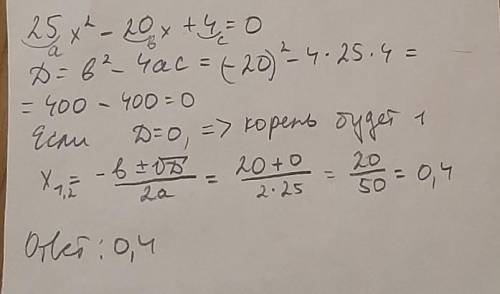 25x² - 20x + 4 = 0
a в c
Д = в² - 4ac = (-20)² - 4·25·4 =
= 400 - 400 = 0
Если Д=0, => корень будет 1
x₁,₂ = (-в ± √Д)/2a = (20+0)/(2·25) = 20/50 = 0,4
Ответ: 0,4